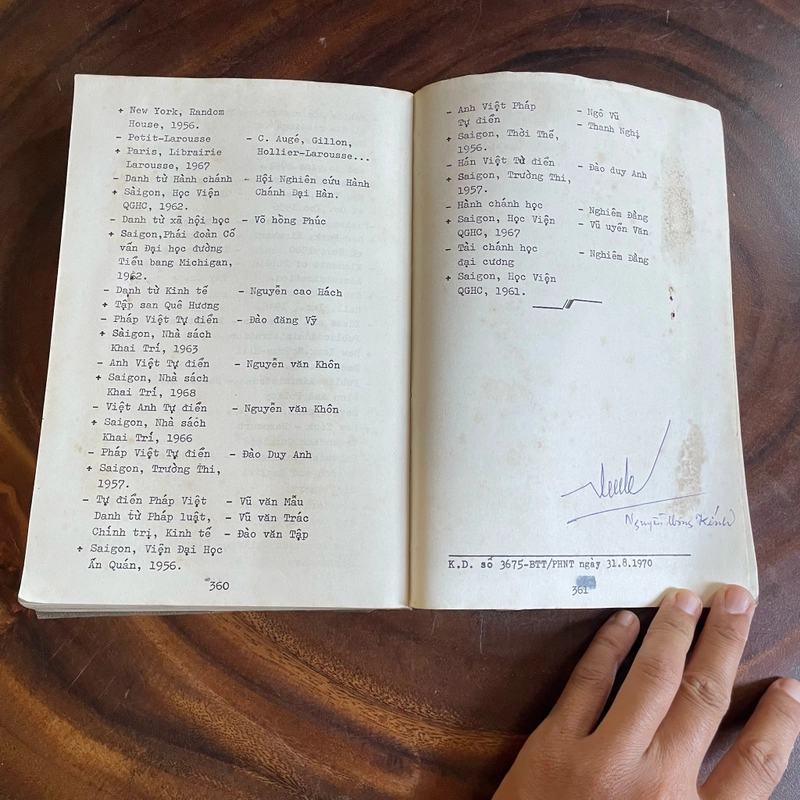 + New York, Random
House, 1956.
- Petit-Larousse - C. Augé, Gillon,
+ Paris, Librairie Hollier-Larousse...
Larousse, 1967
- Danh từ Hành chánh - Hội Nghiên cứu Hành
+ Sàigon, Học Viện Chánh Đại Hàn.
QGHC, 1962.
- Danh từ xã hội học - Võ hồng Phúc
+ Saigon, Phái đoàn Cố
vấn Đại học đường
Tiểu bang Michigan,
1962.
- Danh từ Kinh tế - Nguyễn cao Hách
+ Tập san Quê Hương
- Pháp Việt Tự điển - Đào đăng Vỹ
+ Sàigon, Nhà sách
Khai Trí, 1963
- Anh Việt Tự điển - Nguyễn văn Khôn
+ Saigon, Nhà sách
Khai Trí, 1968
- Việt Anh Tự điển - Nguyễn văn Khôn
+ Saigon, Nhà sách
Khai Trí, 1966
- Pháp Việt Tự điển - Đào Duy Anh
+ Saigon, Trường Thi,
1957.
- Tự điển Pháp Việt - Vũ văn Mẫu
Danh từ Pháp luật, - Vũ văn Trác
Chính trị, Kinh tế - Đào văn Tập
+ Saigon, Viện Đại Học
Ấn Quán, 1956.
360
- Anh Việt Pháp - Ngô Vũ
Tự điển - Thanh Nghị
+ Saigon, Thời Thế,
1956.
- Hán Việt Từ điển - Đào duy Anh
+ Saigon, Trường Thi,
1957.
- Hành chánh học - Nghiêm Đằng
+ Saigon, Học Viện - Vũ uyển Văn
QGHC, 1967
- Tài chánh học - Nghiêm Đằng
đại cương
+ Saigon, Học Viện
QGHC, 1961.
Nguyễn Kính
K.D. số 3675-BTT/PHNT ngày 31.8.1970
361